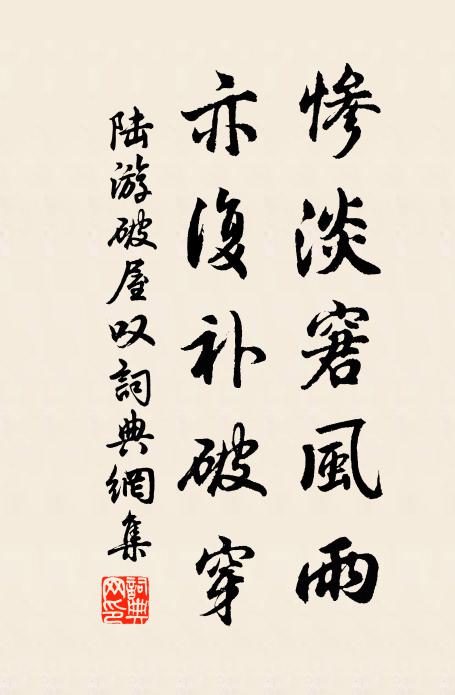 慘淡窘風雨
亦復补破穿
陆游破屋叹詞典網集
詞典网印